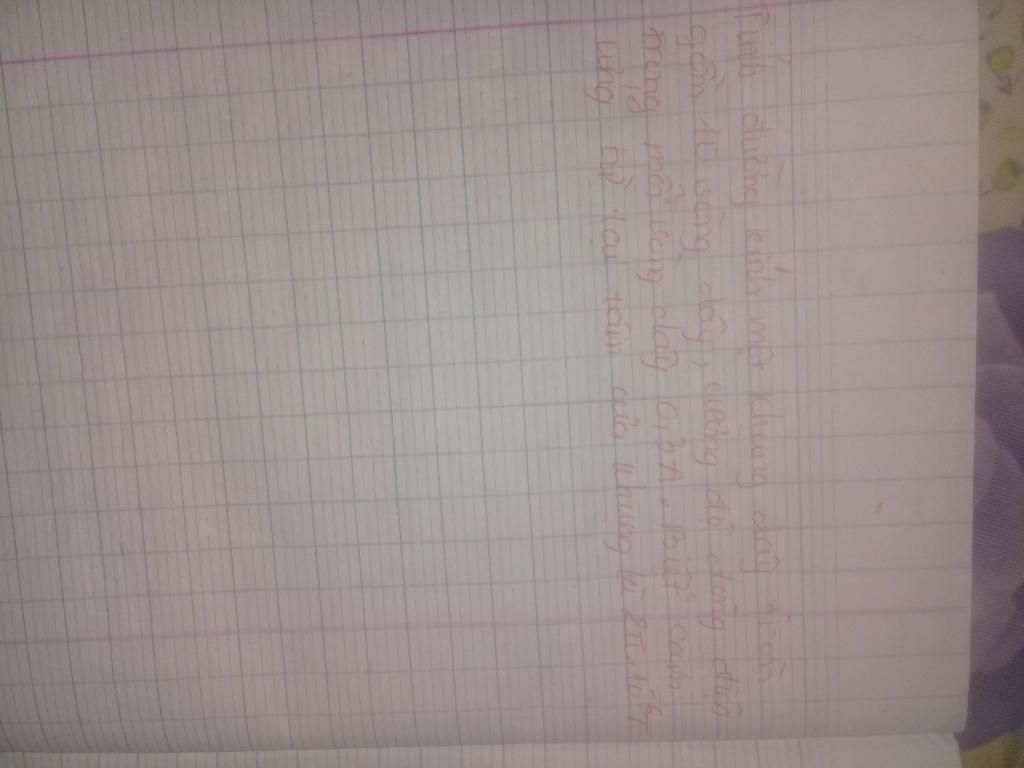 Tính đường kính một khung dây tròn
gồm 10 vòng dây, cường độ dòng điện
trong mỗi vòng dây 0,3A. Biết cảm
ứng từ tại tâm của khung là